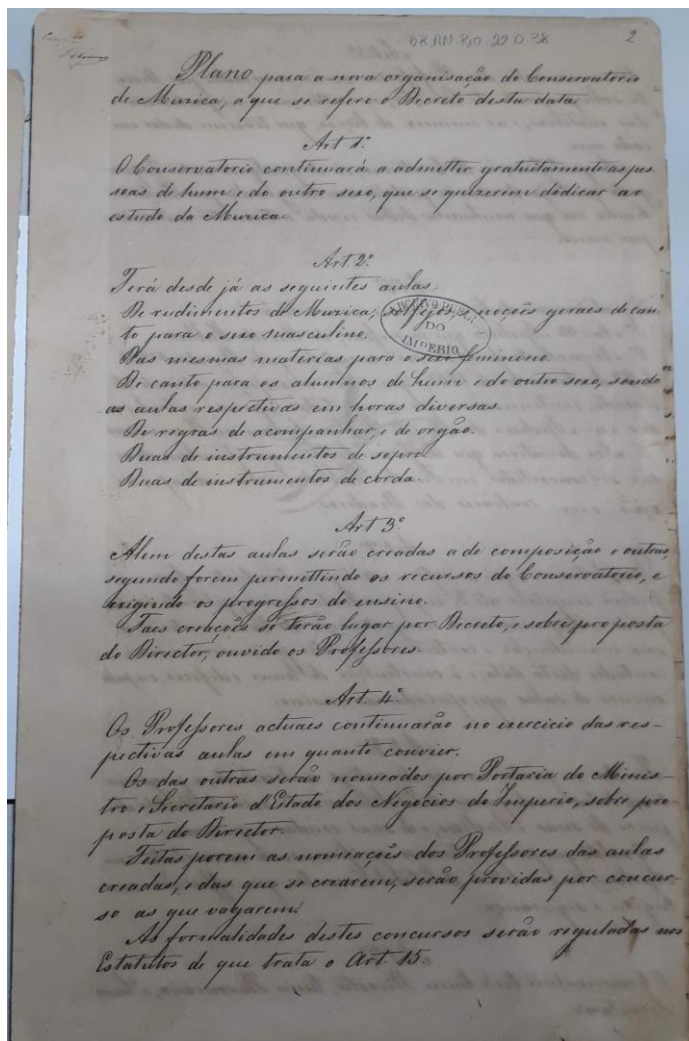 BR.AN.RIO.22.0.38
2
Plano para a nova organisação do Conservatorio
de Muzica, a que se refere o Decreto desta data.
Art 1º
O Conservatorio continuará a admittir gratuitamente as pes-
soas de hum e do outro sexo, que se quizerem dedicar ao
estudo da Muzica.
Art. 2º
Terá desde já as seguintes aulas:
De rudimentos de Muzica, solfejos, e noções geraes de can-
to para o sexo masculino.
Das mesmas materias para o sexo feminino.
De canto para os alumnos de hum e do outro sexo, sendo
as aulas respectivas em horas diversas.
De regras de acompanhar, e de orgão.
Duas de instrumentos de sopro
Duas de instrumentos de corda.
ARCHIVO PUBLICO
DO
IMPERIO
Art 3º
Alem destas aulas serão creadas a de composição e outras,
segundo forem permittindo os recursos do Conservatorio, e
exigindo os progressos do ensino.
Taes creações só terão lugar por Decreto, e sobre proposta
do Director, ouvido os Professores.
Art. 4º
Os Professores actuaes continuarão no exercicio das res-
pectivas aulas em quanto convier.
Os das outras serão nomeados por Portaria do Minis-
tro e Secretario d'Estado dos Negocios do Imperio, sobre pro-
posta do Director.
Feitas porem as nomeações dos Professores das aulas
creadas, e das que se crearem, serão providas por concur-
so as que vagarem.
As formalidades destes concursos serão reguladas nos
Estatutos de que trata o Art. 15.